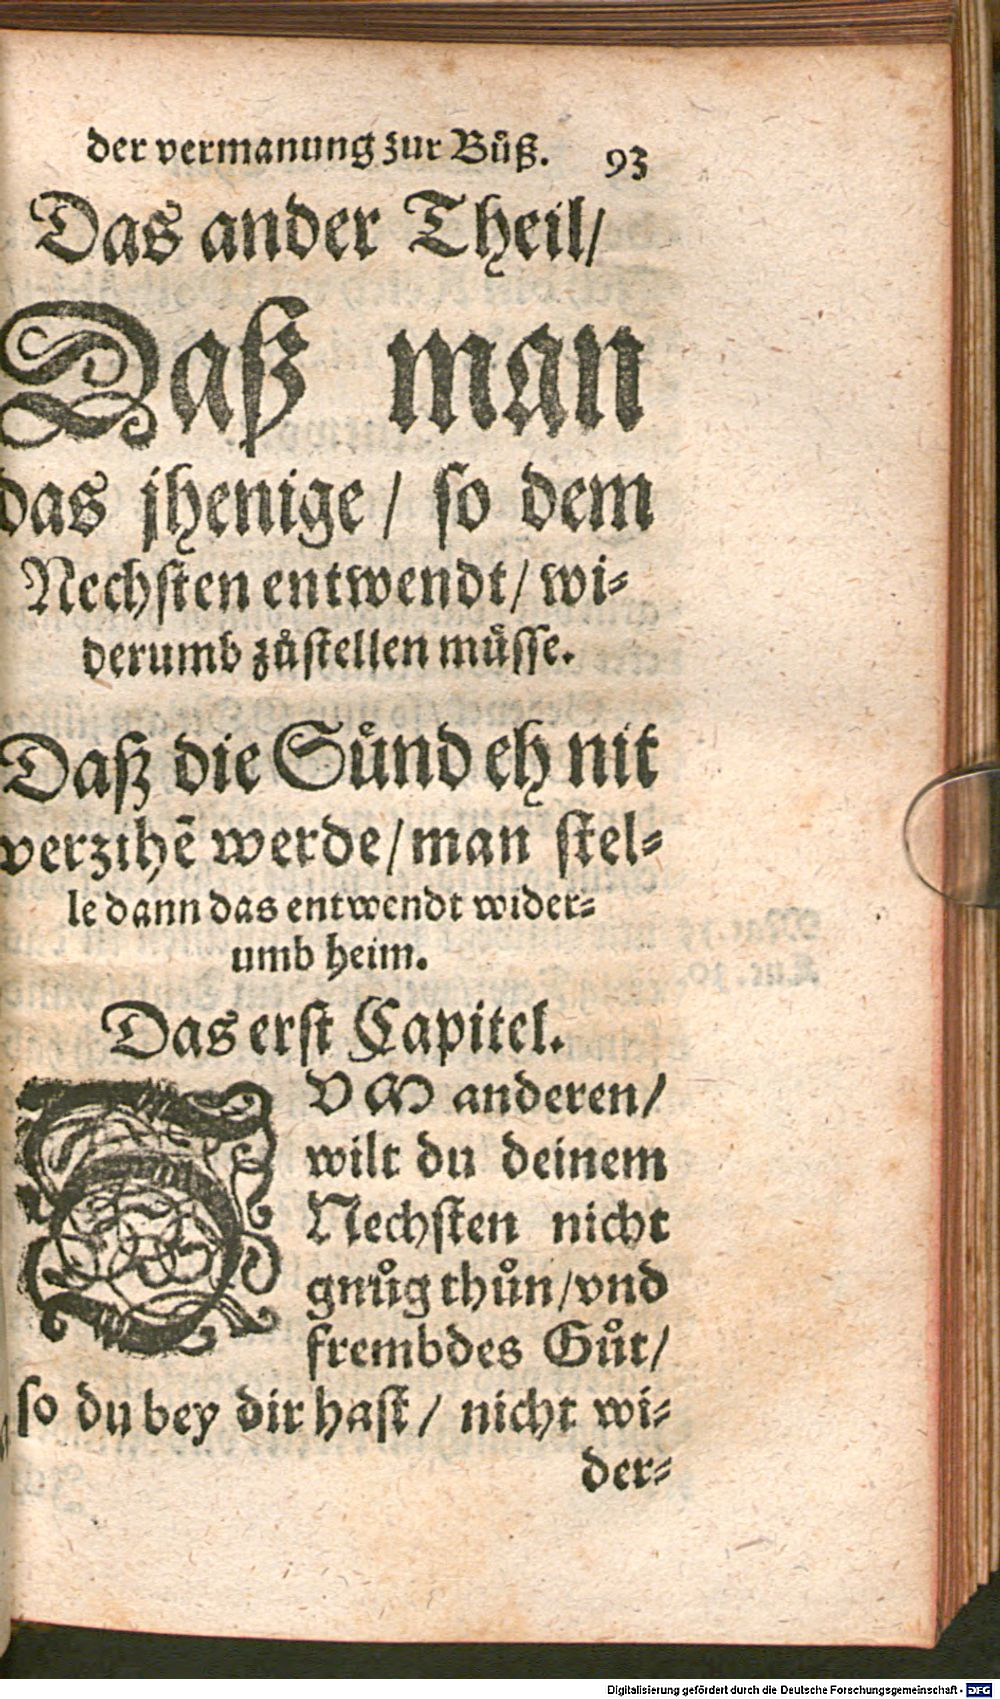 der vermanung zur Bůß. 93
Das ander Theil/
Daß man
das jhenige / so dem
Nechsten entwendt/ wi-
derumb zůstellen müsse.
Daß die Sünd eh nit
verzihẽ werde/man stel-
le dann das entwendt wider-
umb heim.
Das erst Capitel.
ZUM anderen/
wilt du deinem
Nechsten nicht
gnůg thůn/vnd
frembdes Gůt/
so du bey dir hast/ nicht wi-
der-
Digitalisierung gefördert durch die Deutsche Forschungsgemeinschaft - DFG